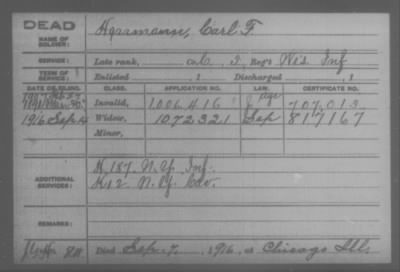 DEAD
NAME OF SOLDIER: Herrmann, Carl F.
SERVICE: Late rank, Co. I, Reg't Wis Inf
TERM OF SERVICE: Enlisted , 1 Discharged , 1
DATE OF FILING. CLASS. APPLICATION NO. LAW. CERTIFICATE NO.
Invalid, 1006416 age 707,013
1916 Sep 14 Widow, 1072321 Sep 817167
Minor,
ADDITIONAL SERVICES:
K 187 N.Y. Inf.
K 12 N.Y. Cav.
REMARKS:
Died Sep. 7, 1916, at Chicago Ill.